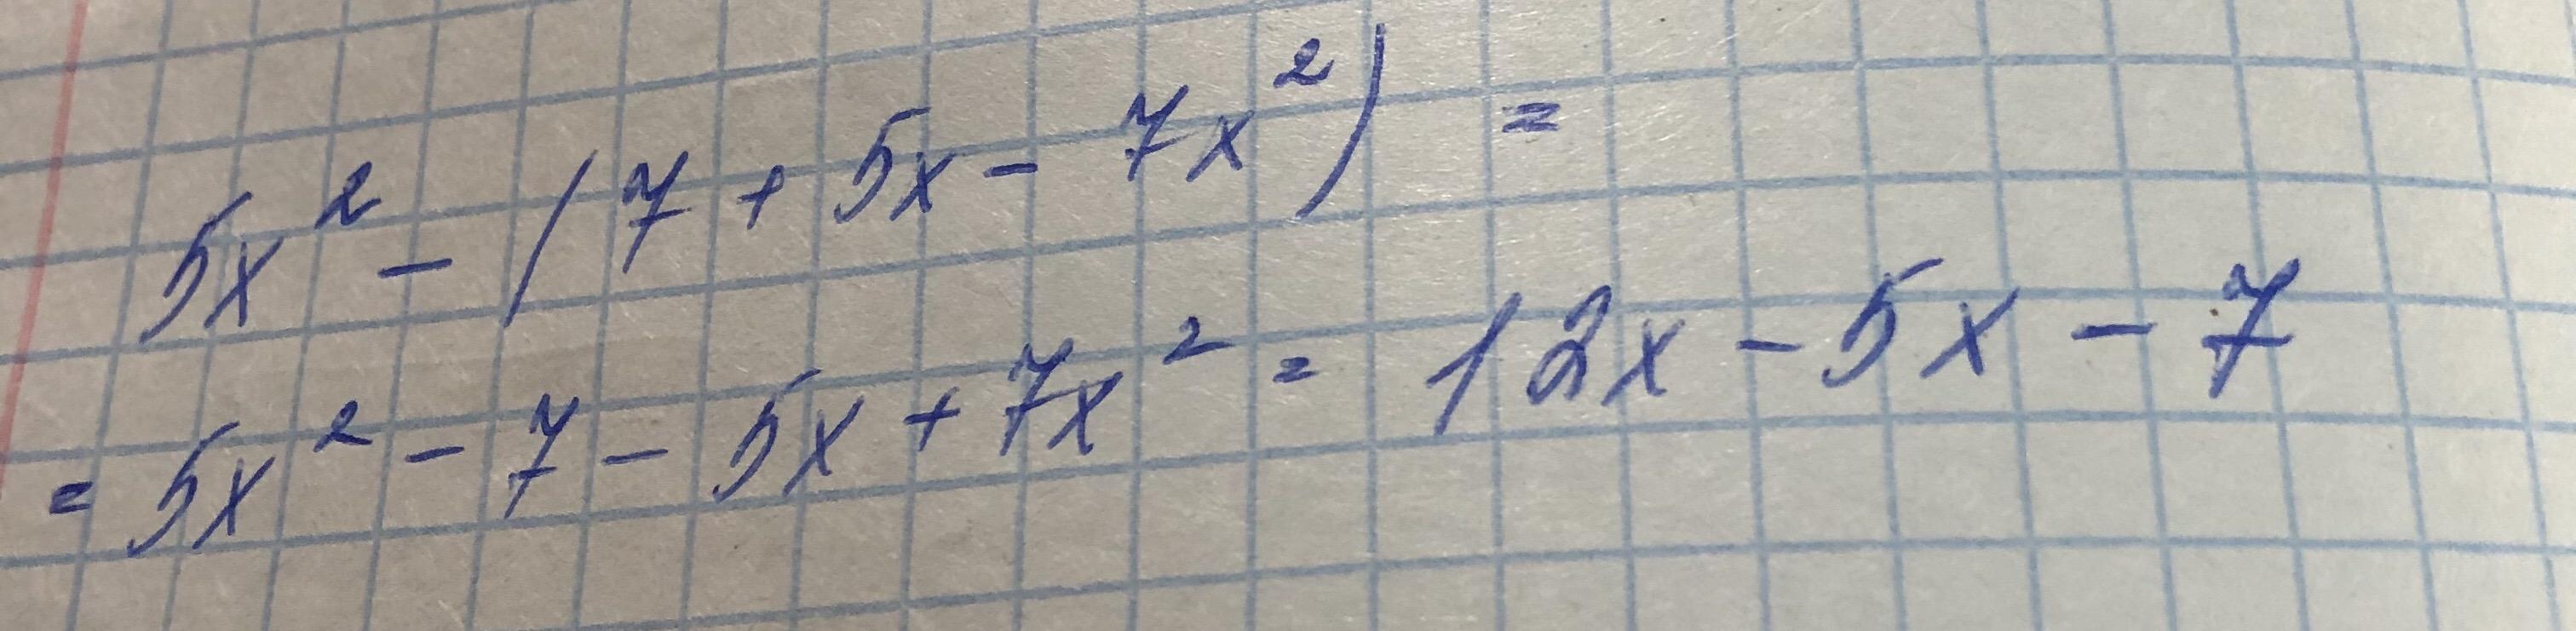 5x² - (7 + 5x - 7x²) =
= 5x² - 7 - 5x + 7x² = 12x - 5x - 7